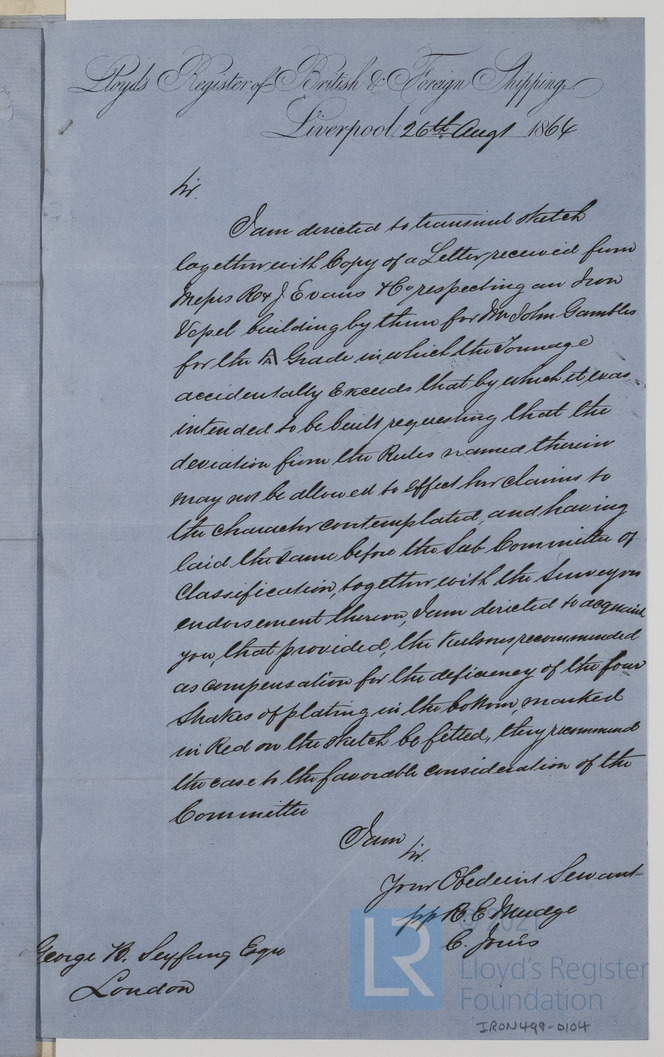 Lloyd's Register of British & Foreign Shipping
Liverpool, 26th Augt 1864
Sir.
I am directed to transmit sketch
together with Copy of a Letter received from
Messrs R & J Evans & Co respecting an Iron
Vessel building by them for Mr John Gambles
for the A Grade in which the Tonnage
accidentally exceeds that by which it was
intended to be built requesting that the
deviation from the Rules named therein
may not be allowed to effect her claims to
the character contemplated, and having
laid the same before the Sub Committee of
Classification, together with the Surveyors
endorsement thereon, I am directed to acquaint
you, that provided, the Keelsons recommended
as compensation for the deficiency of the four
Strakes of plating in the bottom marked
in Red on the sketch be fitted, they recommend
the case to the favorable consideration of the
Committee
I am
Sir.
Your Obedient Servant
pp R. E. Mudge
C. Jones
George B. Seyfang Esqre
London
© 2021
LR
Lloyd's Register
Foundation
IRON499-0104